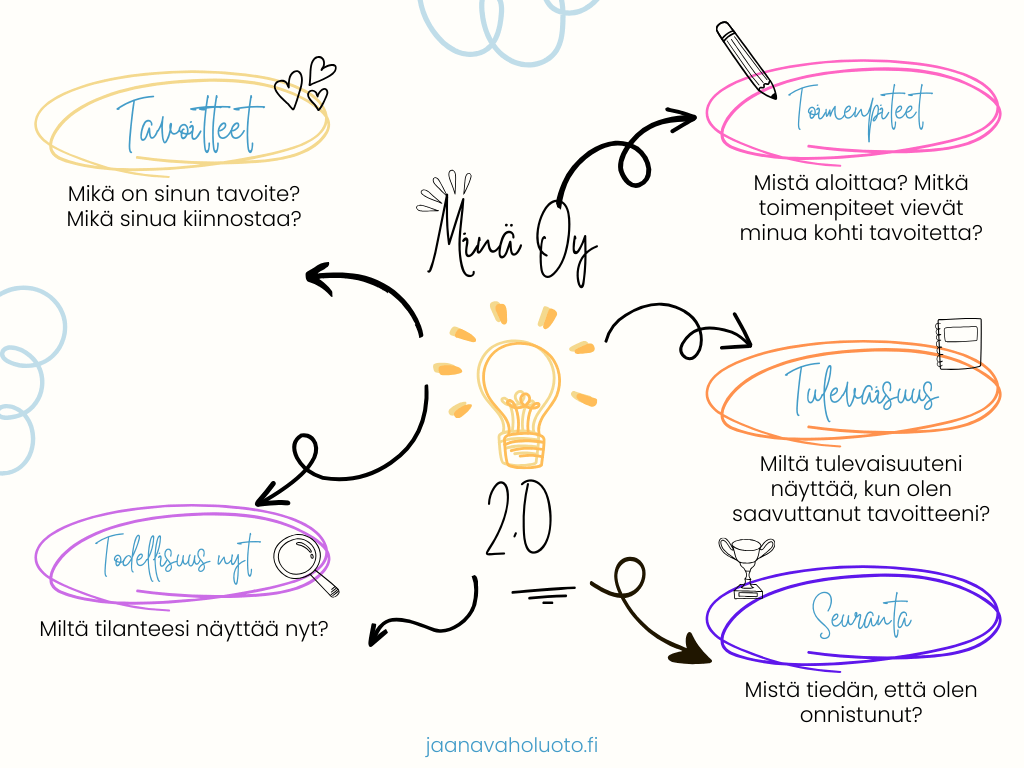 Tavoitteet
Mikä on sinun tavoite?
Mikä sinua kiinnostaa?
Toimenpiteet
Mistä aloittaa? Mitkä
toimenpiteet vievät
minua kohti tavoitetta?
Minä Oy
2.0
Tulevaisuus
Miltä tulevaisuuteni
näyttää, kun olen
saavuttanut tavoitteeni?
Todellisuus nyt
Miltä tilanteesi näyttää nyt?
Seuranta
Mistä tiedän, että olen
onnistunut?
jaanavaholuoto.fi